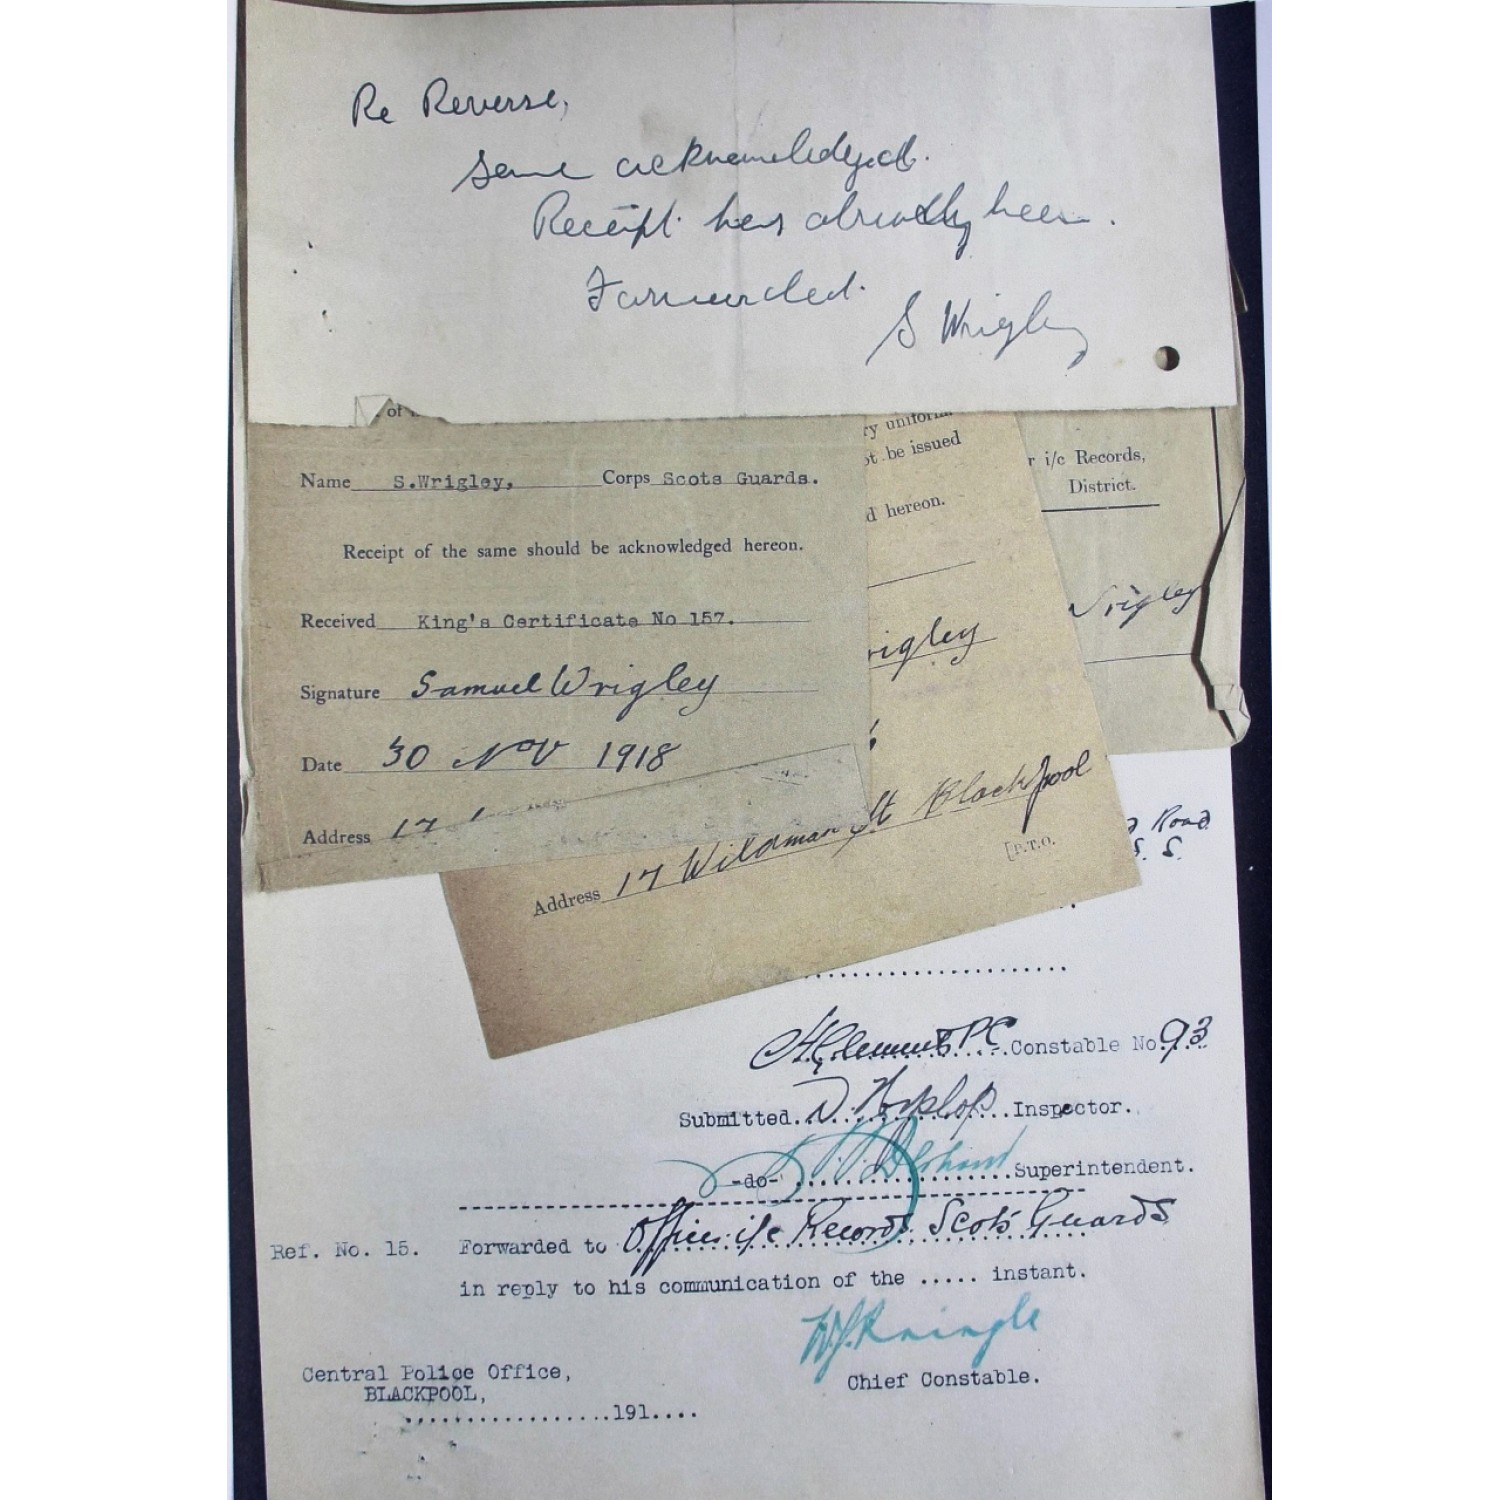 Re Reverse,
Same acknowledged.
Receipt has already been
Forwarded.
S Wrigley
of
ry uniform
ot be issued
d hereon.
r i/c Records,
District.
Name S.Wrigley, Corps Scots Guards.
Receipt of the same should be acknowledged hereon.
Received King's Certificate No 157.
Signature Samuel Wrigley
Date 30 Nov 1918
Address 17
rigley
Wrigley
Address 17 Wildman St Blackpool
[P.T.O.
Road
S. S.
H Clements PC Constable No. 93
Submitted. Inspector.
-do- Superintendent.
Ref. No. 15. Forwarded to Officer i/c Records Scots Guards
in reply to his communication of the ..... instant.
Chief Constable.
Central Police Office,
BLACKPOOL,
.................191....